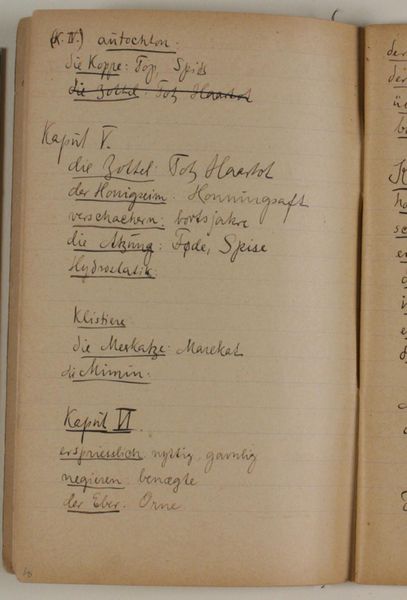 (K. IV.) autochton:
die Koppe: Top, Spids
die Zottel: Tot, Haartot
Kapul V.
die Zottel: Tot, Haartot
der Honigseim: Honningsaft
verschachern: bortsjakre
die Atzung: Føde, Speise
Hydrostatik:
Klistiere
die Merkatze: Marekat
die Mimin:
Kapul VI.
erspriesslich: nyttig, gavnlig
negieren: benægte
der Eber: Orne